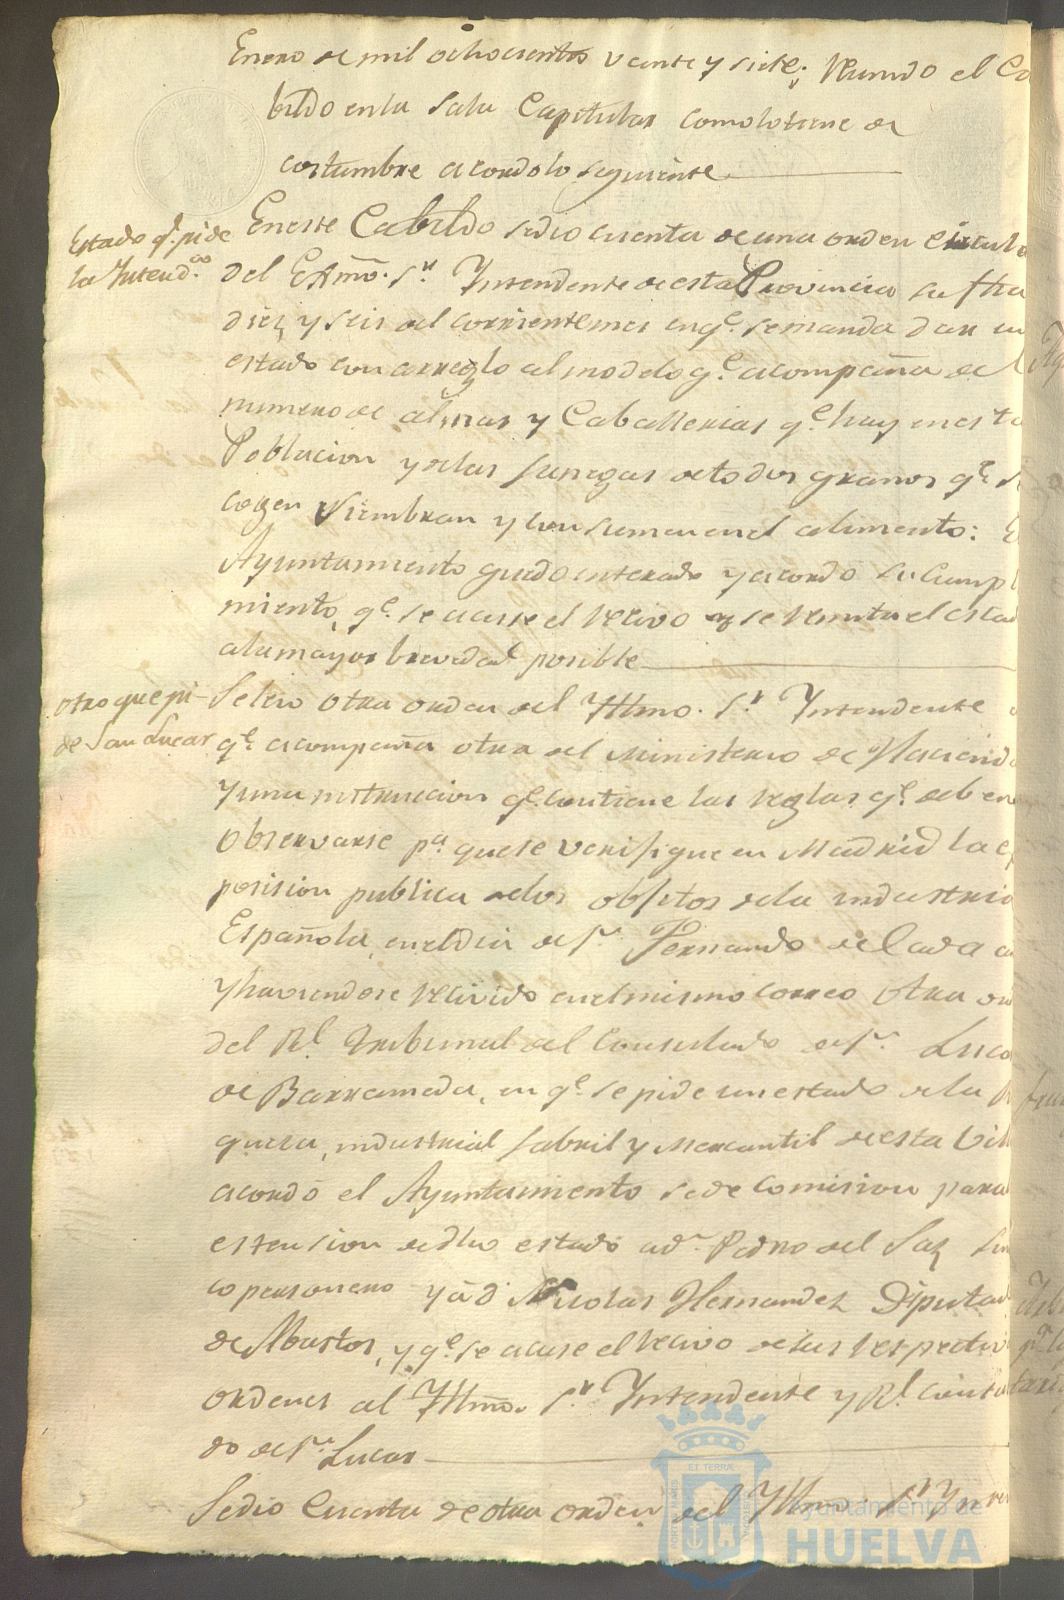 Enero de mil ochocientos veinte y siete; Reunido el Ca
bildo en la Sala Capitular como lo tiene de
costumbre acordo lo seguiente
Estado q.e pide
la Yntend.a
En este Cabildo se dio cuenta de una orden circula
del Exmo. S.r Yntendente de esta Provincia su fha
diez y seis del corriente mes en q.e se manda dar un
estado con arreglo al modelo q.e acompaña del
numero de almas y Caballerias q.e hay en esta
Poblacion y de las fanegas de todos granos q.e s
cogen siembran y consumen en el alimento: E
Ayuntamiento quedo enterado y acordó su Cumpl
miento, q.e se acuse el recivo y se remita el estad
a la mayor brevedad posible
otro que pi-
de San Lucar
Se leio otra orden del Yllmo. S.r Yntendente
q.e acompaña otra del Ministerio de Haciend
y una instruccion q.e contiene las reglas q.e deben
observarse p.a que se verifique en Madrid la es
posision publica de los objetos de la industria
Española, en el dia de S.n Fernando de Cada a
y haviendose recivido en el mismo correo otra or
del R.l Tribunal del Consulado de S.n Luca
de Barrameda, en q.e se pide un estado de la
queza, industrial fabril y Mercantil de esta Vill
acordó el Ayuntamiento se de comision para
estension de dho estado a d.n Pedro del Saz Sin
co personero y á d.n Nicolas Hernandez Diputad
de Abastos, y q.e se acuse el recivo de las respectiv
ordenes al Yllmo. S.r Yntendente y R.l Consula
do de S.n Lucar
Se dio Cuenta de otra orden del Yllmo. S.r Ynten
ET TERRÆ
Ayuntamiento de
HUELVA